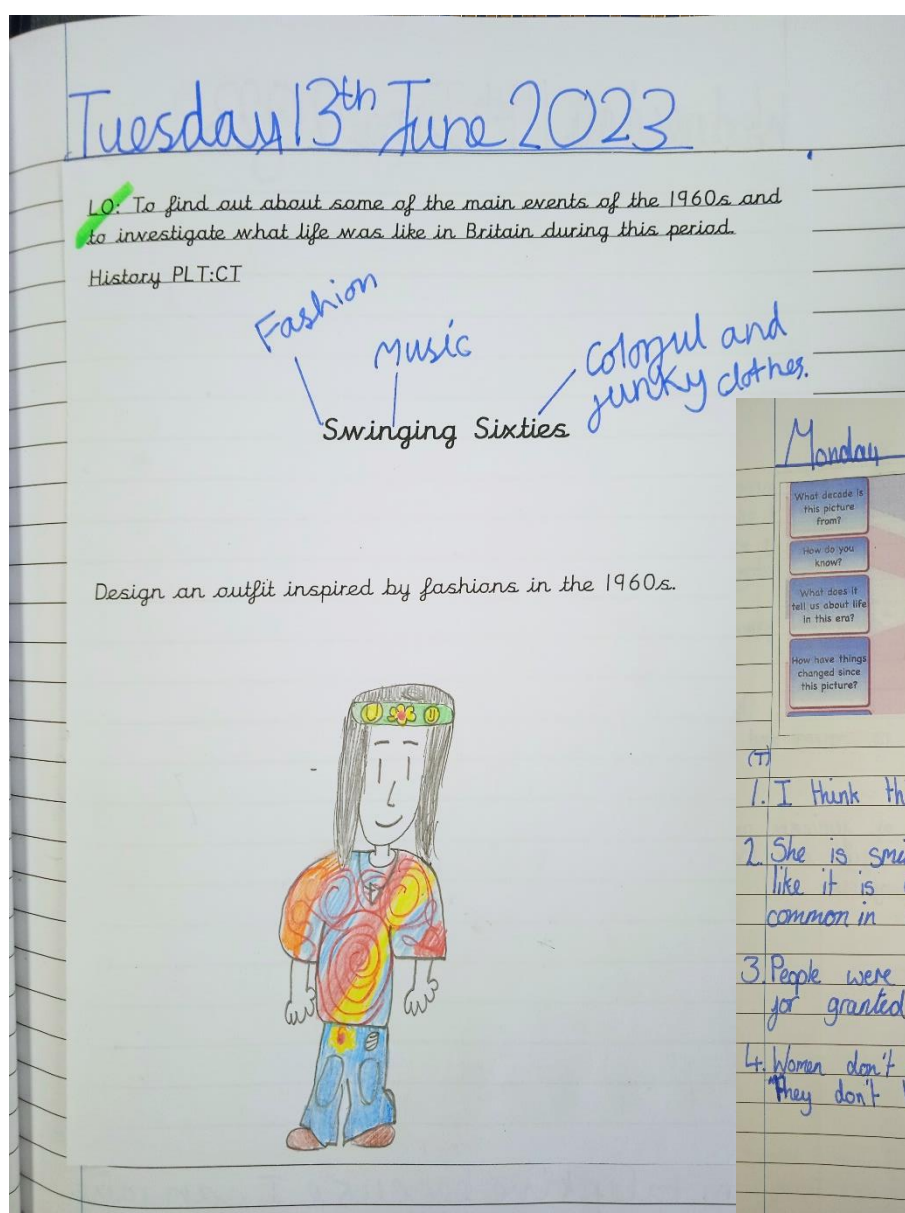 Tuesday 13th June 2023
LO: To find out about some of the main events of the 1960s and
to investigate what life was like in Britain during this period.
History PLT:CT
Fashion
Music
Colorful and
funky clothes.
Swinging Sixties
Design an outfit inspired by fashions in the 1960s.
Monday
What decade is
this picture
from?
How do you
know?
What does it
tell us about life
in this era?
How have things
changed since
this picture?
(T)
1. I think
2. She is
like it is
common in
3. People were
for granted
4. Women don't
They don't